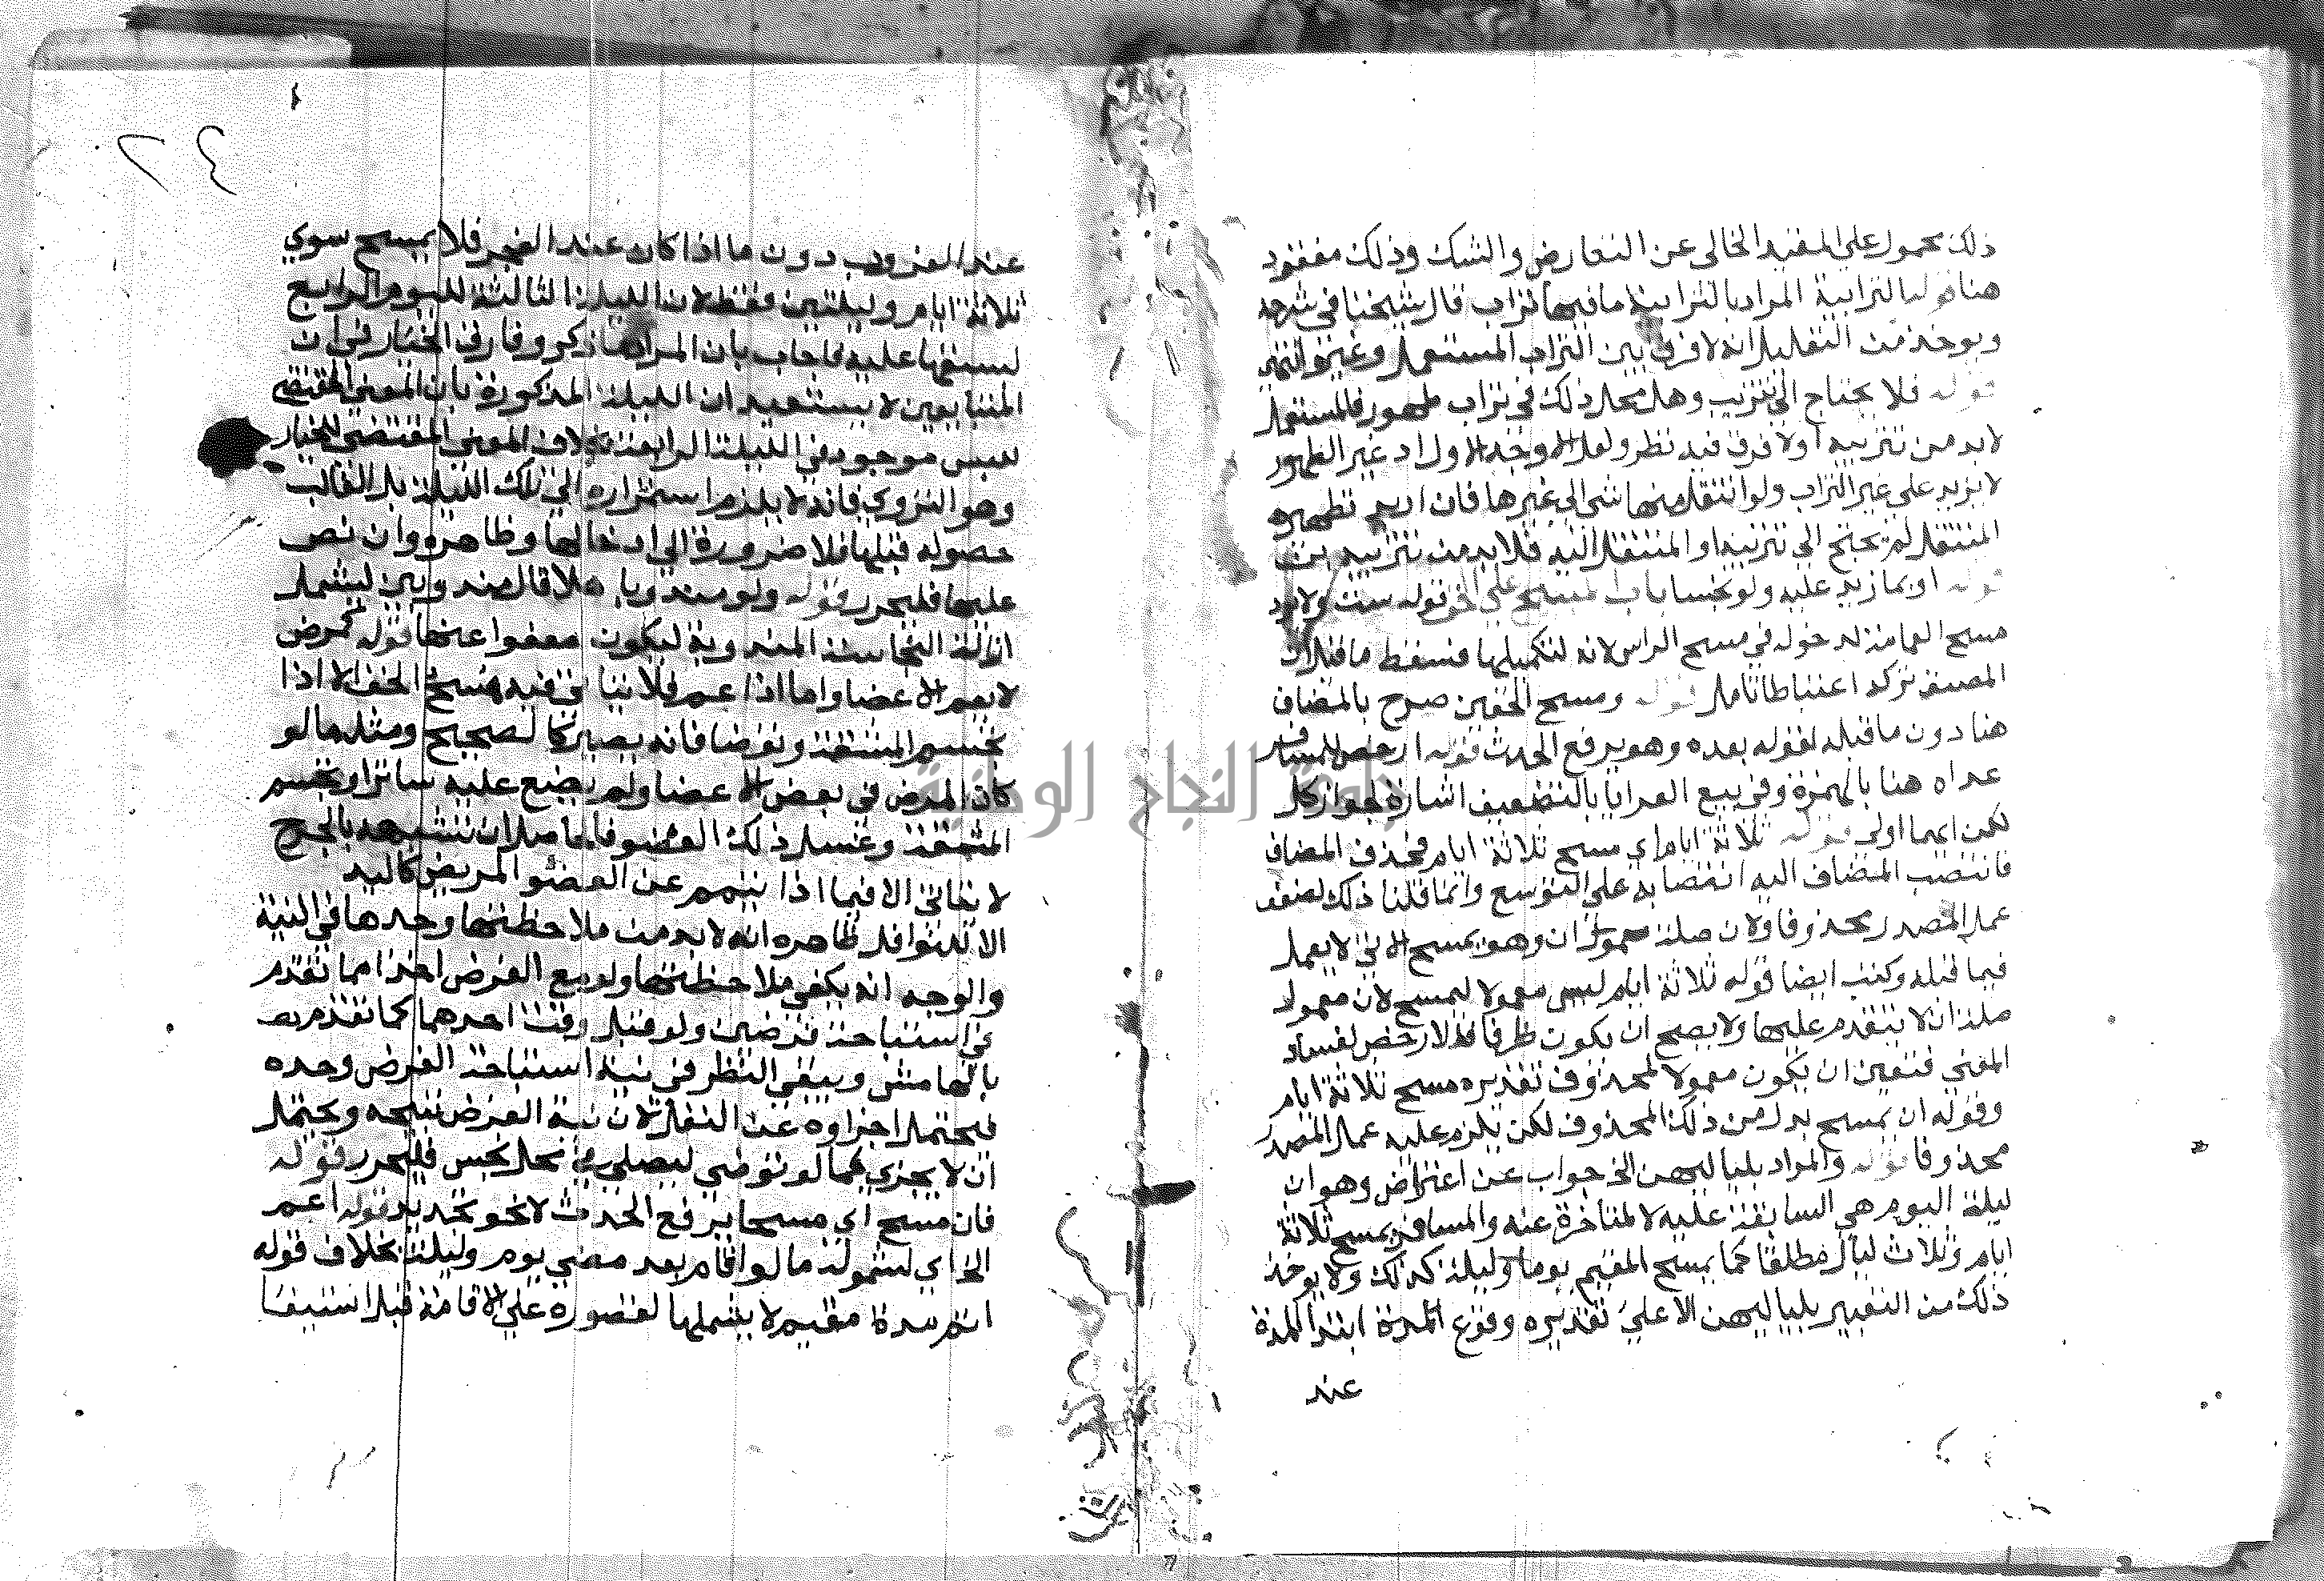 ذلك محمول على المفيد الخالى عن التعارض والشك وذلك مفقود
هنا قوله الترابية المراد بالترابية ما فيها تراب قال شيخنا في شرحه
ويوخذ من التعليل انه لا فرق بين التراب المستعمل وغيره انتهى
قوله فلا يحتاج الي تتريب وهل محل ذلك في تراب طهور فالمستعمل
لابد من تتريبه اولا فرق فيه نظر ولعل الاوجه الاول اد غير الطهور
لا يزيد على غير التراب ولو انتقل منها شى الى غيرها فان اريد تطهيره
المنتقل لم يحتج الي تتريبه او المنتقل اليه فلا بد من تتريبه
قوله او بما زيد عليه ولو نجسا باب المسح على الخف قوله ست ولا يرد
مسح العمامة لدخوله في مسح الراس لانه لتكميلها فسقط ما قيل ان
المصنف تركه اعتباطا تامل قوله ومسح الخفين صرح بالمضاف
هنا دون ما قبله لقوله بعده وهو يرفع الحدث قوله ارخص للمسافر
عداه هنا بالهمزة وفي بيع العرايا بالتضعيف اشارة لجواز كل
لكن ايهما اولى قوله ثلاثة ايام اي مسح ثلاثة ايام فحذف المضاف
فانتصب المضاف اليه انتصابه على التوسع وانما قلنا ذلك لضعف
عمل المصدر محذوفا ولان صلة معمول ان وهو يمسح الاتي لا يعمل
فيما قبله وكتب ايضا قوله ثلاثة ايام ليس معمولا ليمسح لان معمول
صلة ان لا يتقدم عليها ولا يصح ان يكون ظرفا لارخص لفساد
المعني فتعين ان يكون معمولا لمحذوف تقديره مسح ثلاثة ايام
وقوله ان يمسح بدل من ذلك المحذوف لكن يلزم عليه عمل المصدر
محذوفا قوله والمراد بلياليهن الخ جواب عن اعتراض وهو ان
ليلة اليوم هي السابقة عليه لا المتأخرة عنه والمسافر يمسح ثلاثة
ايام وثلاث ليال مطلقا كما يمسح المقيم يوما وليلة كذلك ولا يوخذ
ذلك من التعبير بلياليهن الا علي تقدير وقوع المدة ابتدا المدة
عند
٢٤
عند الغروب دون ما اذا كان عند الفجر فلا يمسح سوي
ثلاثة ايام وليلتين فقط لان الليلة الثالثة لليوم الرابع
لسبقها عليه فاجاب بان المراد ما ذكر وفارق الخيار في ان
المتبايعين لا يستفيدان الليلة المذكورة بان المعنى المقتضى
للبس موجود في الليلة الرابعة بخلاف المعنى المقتضى للخيار
وهو التروي فانه لا يلزم استمراره الي تلك الليلة بل الغالب
حصوله قبلها فلا ضرورة الى ادخالها وظاهره وان نص
عليها فليحرر قوله ولو مندوبا هلا قال منه وبين ليشمل
ازالة النجاسة المندوبة ليكون معفوا عنها قوله لمرض
لا يعم الاعضا واما اذا عم فلا يتاتى فيه مسح الخف الا اذا
تجشم المشقة وتوضا فانه يصير كالصحيح ومثله ما لو
كان المرض في بعض الاعضا ولم يضع عليه ساترا وتجشم
المشقة وغسل ذلك العضو فالحاصل ان تشبيهه بالجرح
لا يتاتى الا فيما اذا تيمم عن العضو المريض كاليد
الا للنوافل ظاهره انه لا بد من ملاحظتها وحدها في النية
والوجه انه يكفي ملاحظتها ولو مع الفرض اخذا مما تقدم
في استباحة فرضين ولو قبل وقت احدهما كما تقدم
بالهامش ويبقى النظر في نية استباحة الفرض وحده
فيحتمل اجزاوه عن النفل لان نية الفرض تبيحه ويحتمل
ان لا يجزي كما لو توضى ليصلى في محل نجس فليحرر قوله
فان مسح اي مسحا يرفع الحدث لا نحو تجديد قوله اعم
الخ اي لشموله ما لو اقام بعد مضي يوم وليلة بخلاف قوله
اتم مدة مقيم لا يشملها لقصوره على الاقامة قبل استيفا